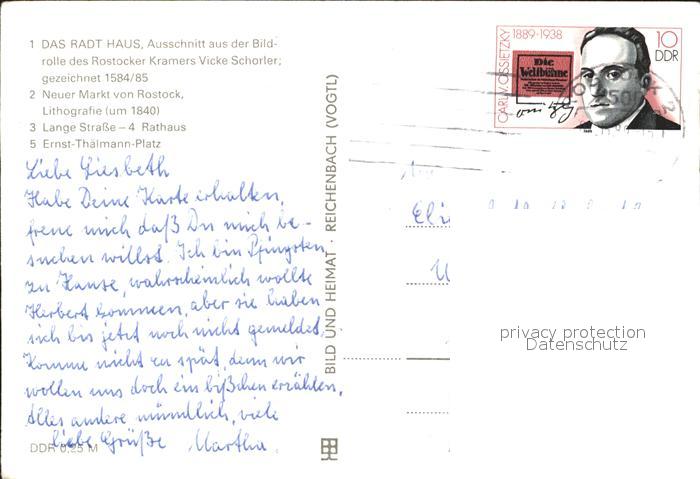 1 DAS RADT HAUS, Ausschnitt aus der Bild-
rolle des Rostocker Kramers Vicke Schorler;
gezeichnet 1584/85
2 Neuer Markt von Rostock,
Lithografie (um 1840)
3 Lange Straße – 4 Rathaus
5 Ernst-Thälmann-Platz
Liebe Liesbeth
Habe Deine Karte erhalten,
freue mich daß Du mich be-
suchen willst. Ich bin Pfingsten
zu Hause, wahrscheinlich wollte
Herbert kommen, aber sie haben
sich bis jetzt noch nicht gemeldet.
Komme nicht zu spät, denn wir
wollen uns doch ein bißchen erzählen,
Alles andere mündlich, viele
liebe Grüße Martha.
DDR 0,25 M
BILD UND HEIMAT · REICHENBACH (VOGTL)
CARL V. OSSIETZKY 1889-1938
Die
Weltbühne
10
DDR
privacy protection
Datenschutz